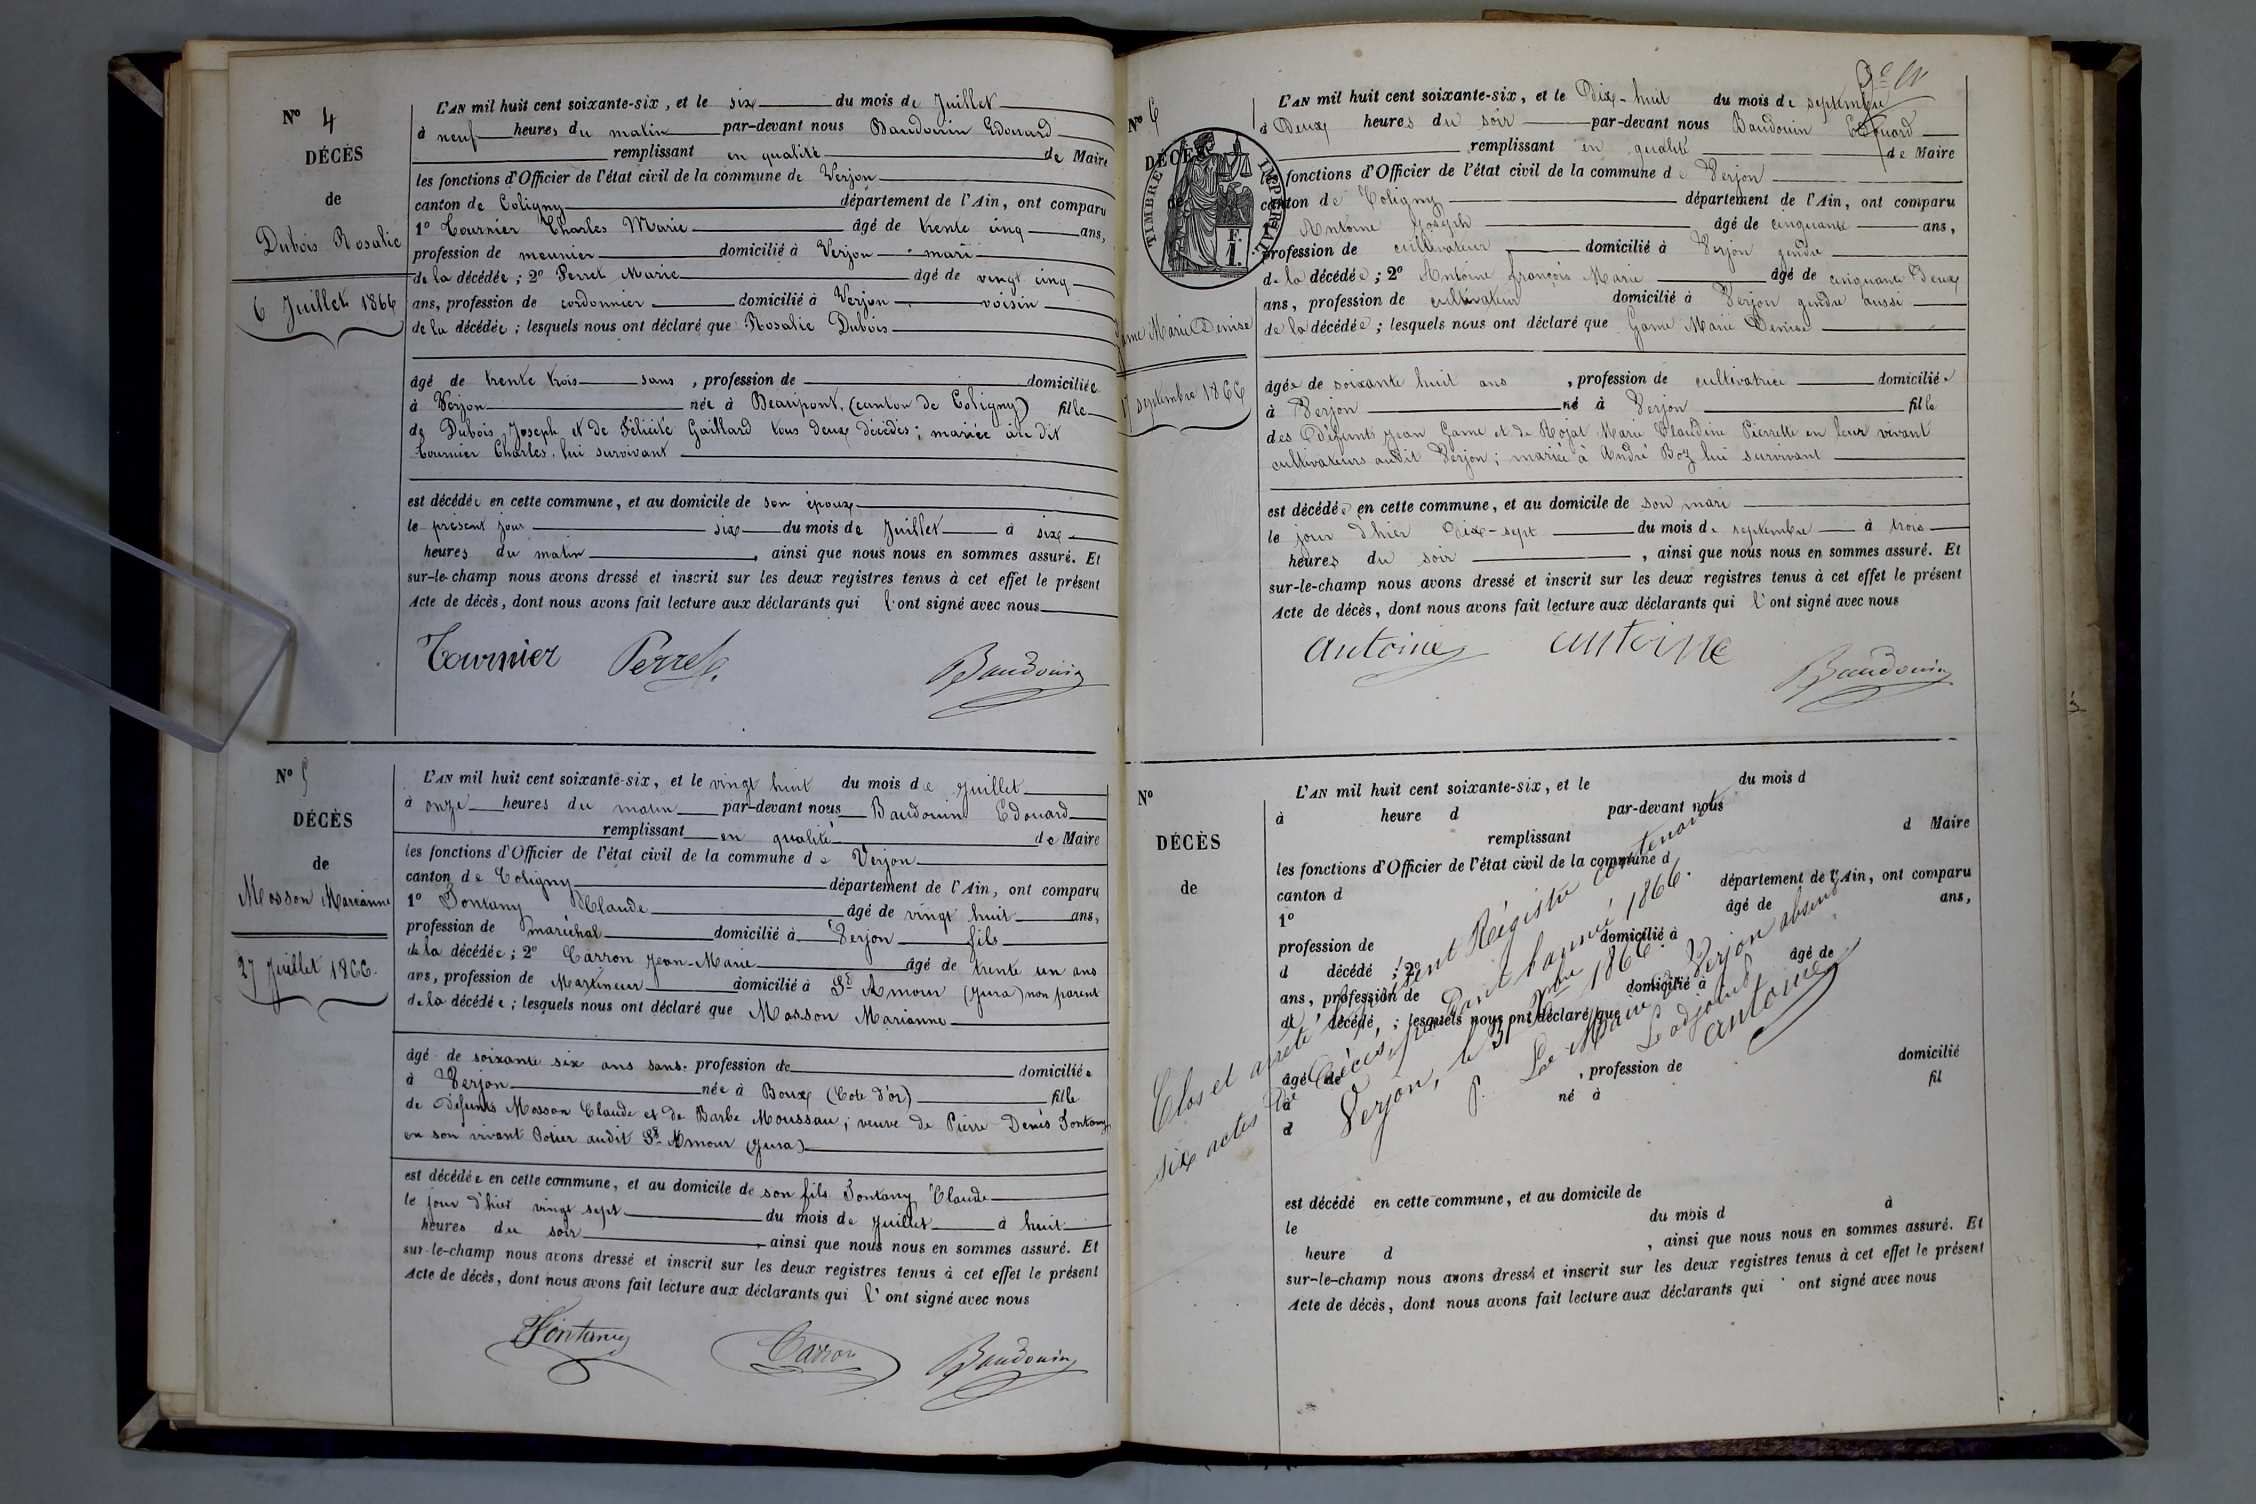 N° 4
DÉCÈS
de
Dubois Rosalie
6 Juillet 1866
L'AN mil huit cent soixante-six, et le six du mois de Juillet
à neuf heures du matin par-devant nous Baudouin Edouard
remplissant en qualité de Maire
les fonctions d'Officier de l'état civil de la commune de Verjon
canton de Coligny département de l'Ain, ont comparu
1° Tournier Charles Marie âgé de trente cinq ans,
profession de meunier domicilié à Verjon mari
de la décédée; 2° Perret Marie âgé de vingt cinq
ans, profession de cordonnier domicilié à Verjon voisin
de la décédée; lesquels nous ont déclaré que Rosalie Dubois
âgé de trente trois sans, profession de domiciliée
à Verjon née à Beaupont, (canton de Coligny) fille
de Dubois Joseph et de Félicité Gaillard tous deux décédés; mariée au dit
Tournier Charles, lui survivant
est décédée en cette commune, et au domicile de son époux
le présent jour six du mois de Juillet à six
heures du matin, ainsi que nous nous en sommes assuré. Et
sur-le-champ nous avons dressé et inscrit sur les deux registres tenus à cet effet le présent
Acte de décès, dont nous avons fait lecture aux déclarants qui l'ont signé avec nous
Tournier Perret Baudouin
N° 5
DÉCÈS
de
Mosson Marianne
27 Juillet 1866.
L'AN mil huit cent soixante-six, et le vingt huit du mois de Juillet
à onze heures du matin par-devant nous Baudouin Edouard
remplissant en qualité de Maire
les fonctions d'Officier de l'état civil de la commune de Verjon
canton de Coligny département de l'Ain, ont comparu
1° Fontany Claude âgé de vingt huit ans,
profession de maréchal domicilié à Verjon fils
de la décédée; 2° Carron Jean-Marie âgé de trente un ans
ans, profession de Martineur domicilié à St Amour (Jura) non parent
de la décédée; lesquels nous ont déclaré que Mosson Marianne
âgé de soixante six ans sans profession de domiciliée
à Verjon née à Boux (Cote d'or) fille
de défunts Mosson Claude et de Barbe Moussau; veuve de Pierre Denis Fontany
en son vivant Potier audit St Amour (Jura)
est décédée en cette commune, et au domicile de son fils Fontany Claude
le jour d'hier vingt sept du mois de Juillet à huit
heures du soir, ainsi que nous nous en sommes assuré. Et
sur-le-champ nous avons dressé et inscrit sur les deux registres tenus à cet effet le présent
Acte de décès, dont nous avons fait lecture aux déclarants qui l'ont signé avec nous
Fontany Carron Baudouin
N° 6
DÉCÈ
de
TIMBRE IMPÉRIAL
F.
1.
Game Marie Denise
17 septembre 1866
L'AN mil huit cent soixante-six, et le Dix-huit du mois de septembre
à Deux heures du soir par-devant nous Baudouin Edouard
remplissant en qualité de Maire
les fonctions d'Officier de l'état civil de la commune de Verjon
canton de Coligny département de l'Ain, ont comparu
1° Antoine Joseph âgé de cinquante ans,
profession de cultivateur domicilié à Verjon gendre
de la décédée; 2° Antoine françois Marie âgé de cinquante Deux
ans, profession de cultivateur domicilié à Verjon gendre aussi
de la décédée; lesquels nous ont déclaré que Game Marie Denise
âgée de soixante huit ans, profession de cultivatrice domiciliée
à Verjon né à Verjon fille
des défunts Jean Game et de Rojat Marie Claudine Pierrette en leur vivant
cultivateurs audit Verjon; mariée à André Boz lui survivant
est décédée en cette commune, et au domicile de son mari
le jour d'hier Dix-sept du mois de septembre à trois
heures du soir, ainsi que nous nous en sommes assuré. Et
sur-le-champ nous avons dressé et inscrit sur les deux registres tenus à cet effet le présent
Acte de décès, dont nous avons fait lecture aux déclarants qui l'ont signé avec nous
antoine antoine Baudouin
N°
DÉCÈS
de
L'AN mil huit cent soixante-six, et le du mois d
à heure d par-devant nous
remplissant d Maire
les fonctions d'Officier de l'état civil de la commune d
canton d département de l'Ain, ont comparu
1° âgé de ans,
profession de domicilié à
d décédé; 2° âgé de
ans, profession de domicilié à
d décédé; lesquels nous ont déclaré que
âgé de, profession de domicilié
à né à fil
d
est décédé en cette commune, et au domicile de
le du mois d à
heure d, ainsi que nous nous en sommes assuré. Et
sur-le-champ nous avons dressé et inscrit sur les deux registres tenus à cet effet le présent
Acte de décès, dont nous avons fait lecture aux déclarants qui ont signé avec nous
Clos et arrêté le présent Régistre contenant
six actes de Décès, pendant l'année 1866.
Verjon, le 31 Xbre 1866.
p. Le Maire de Verjon absent
Le adjoint
antoine